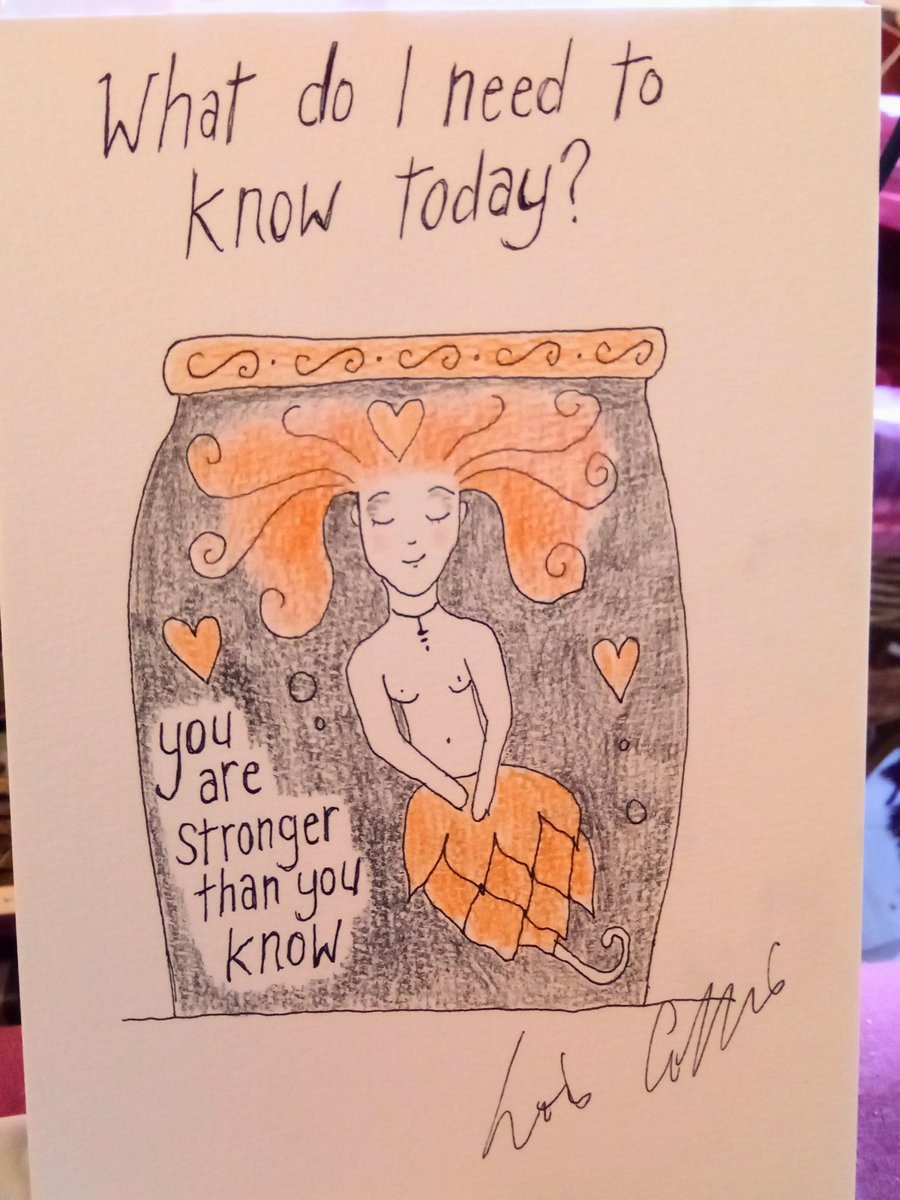 What do I need to
know today?
you
are
stronger
than you
know